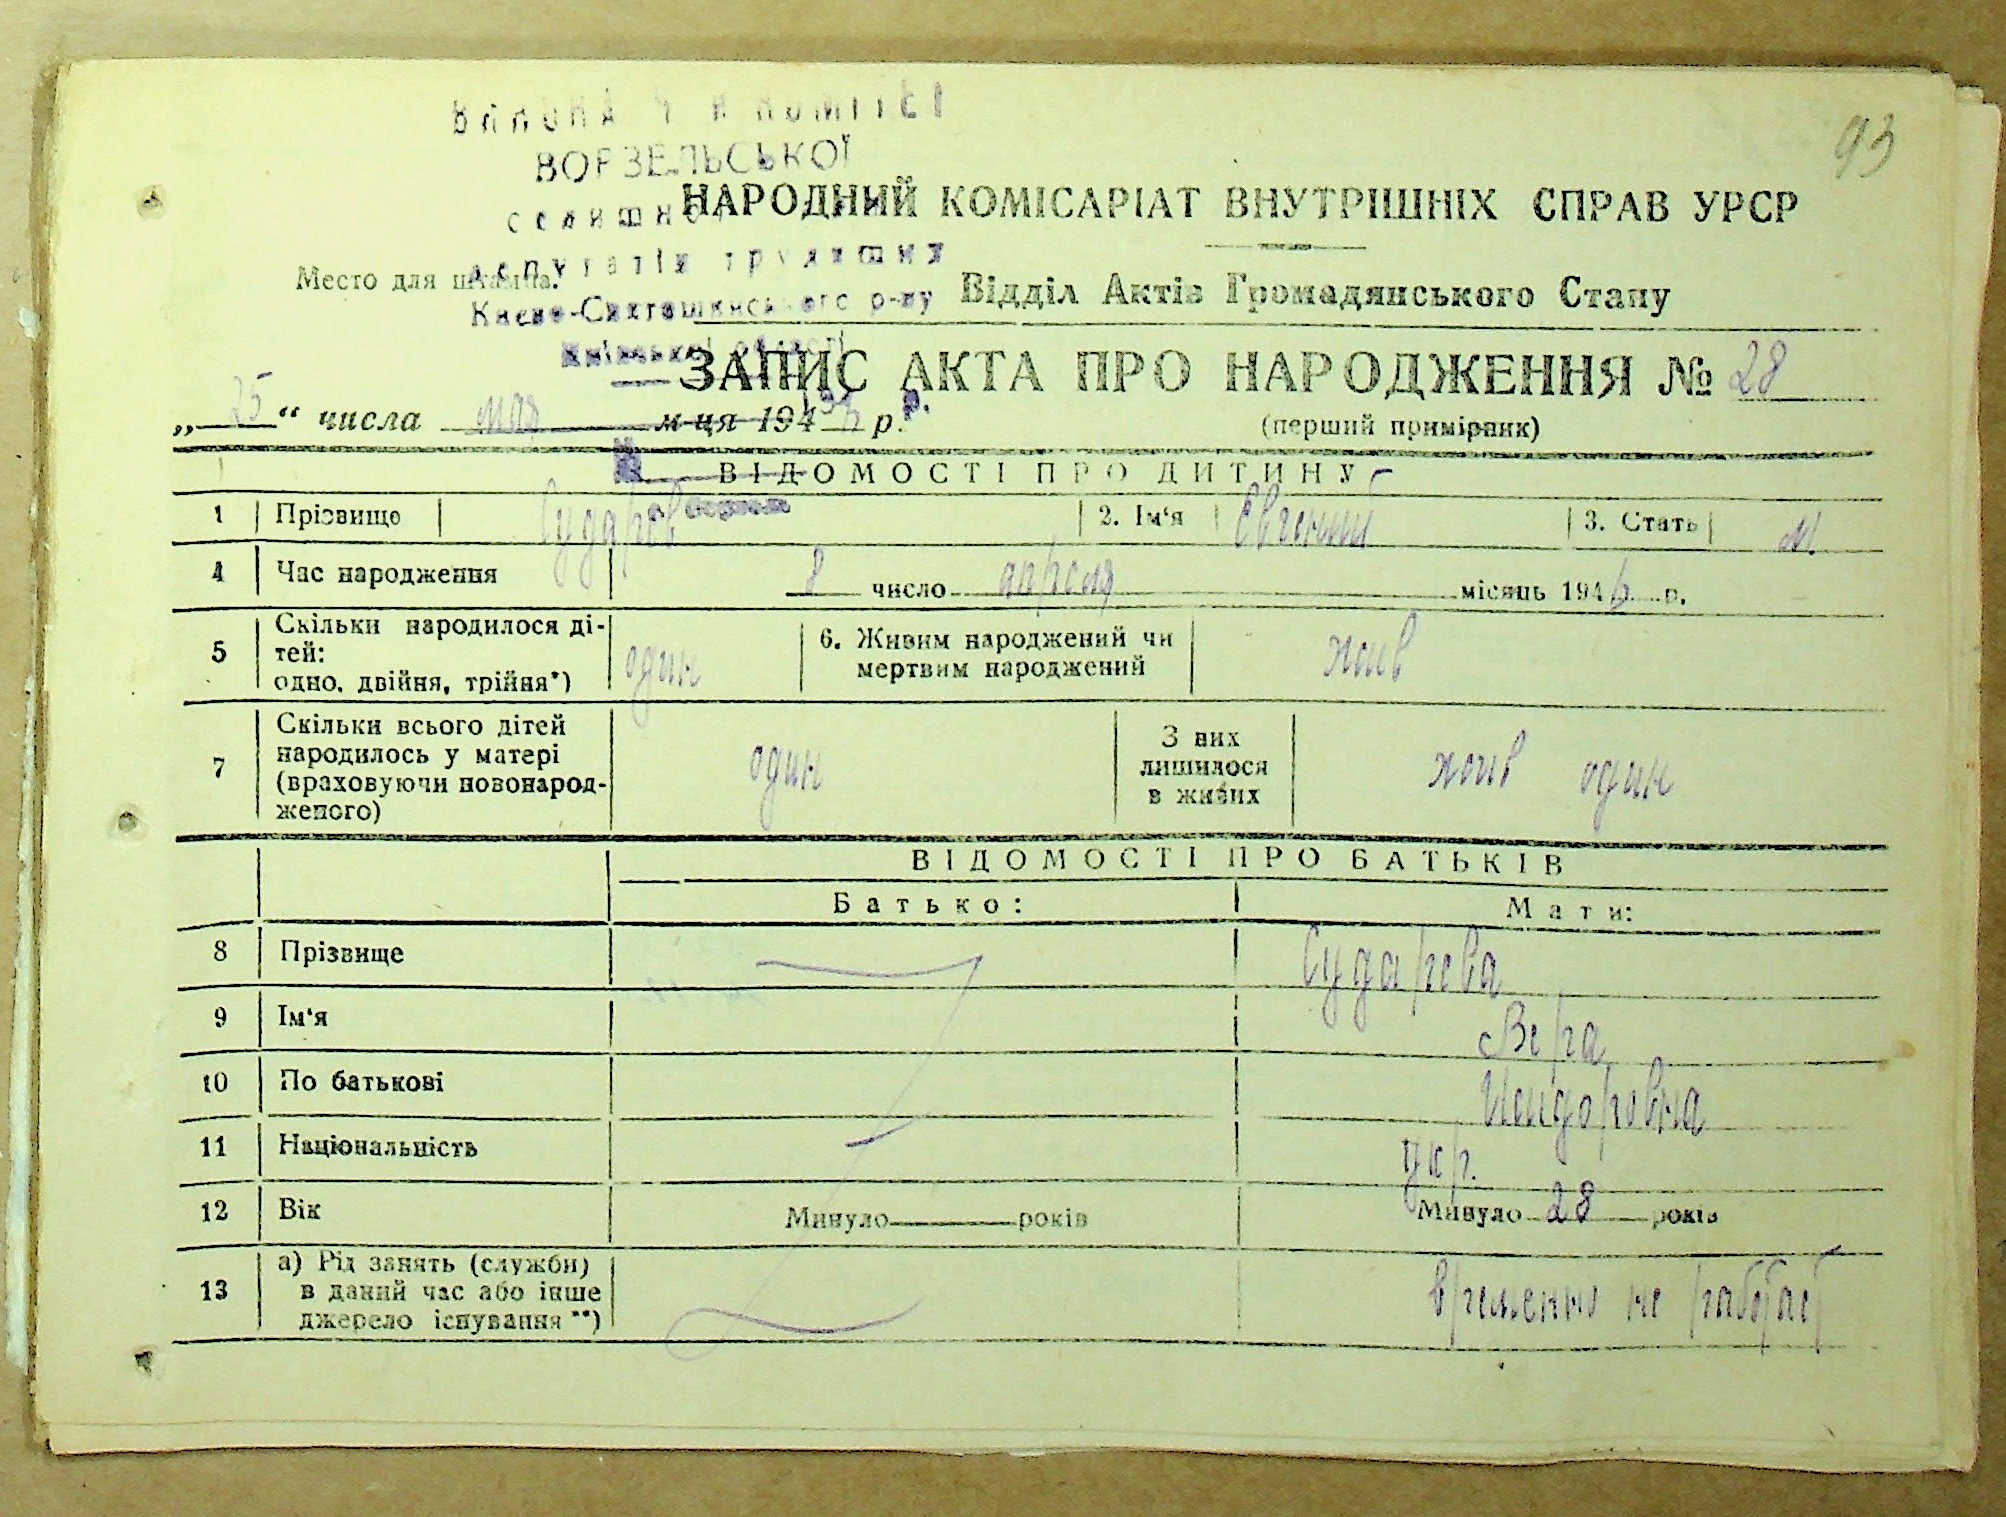 93
ВОРЗЕЛЬСЬКОЇ
НАРОДНИЙ КОМІСАРІАТ ВНУТРІШНІХ СПРАВ УРСР
депутатів трудящих
Место для штампа.
Києво-Святошинського р-ну
Відділ Актів Громадянського Стану
Київської області
ЗАПИС АКТА ПРО НАРОДЖЕННЯ № 28
„ 25 “ числа мая м-ця 194 р.
(перший примірник)
ВІДОМОСТІ ПРО ДИТИНУ
1 Прізвище Сударев 2. Ім‘я Евгений 3. Стать м.
4 Час народження 8 число апреля місяць 1946 р.
5 Скільки народилося ді-
тей:
одно, двійня, трійня*) один 6. Живим народжений чи
мертвим народжений жив
7 Скільки всього дітей
народилось у матері
(враховуючи новонарод-
женого) один З них
лишилося
в живих жив один
ВІДОМОСТІ ПРО БАТЬКІВ
Батько: Мати:
8 Прізвище Сударева
9 Ім‘я Вера
10 По батькові Исидоровна
11 Національність укр.
12 Вік Минуло років Минуло 28 років
13 а) Рід занять (служби)
в даний час або інше
джерело існування **) временно не работает